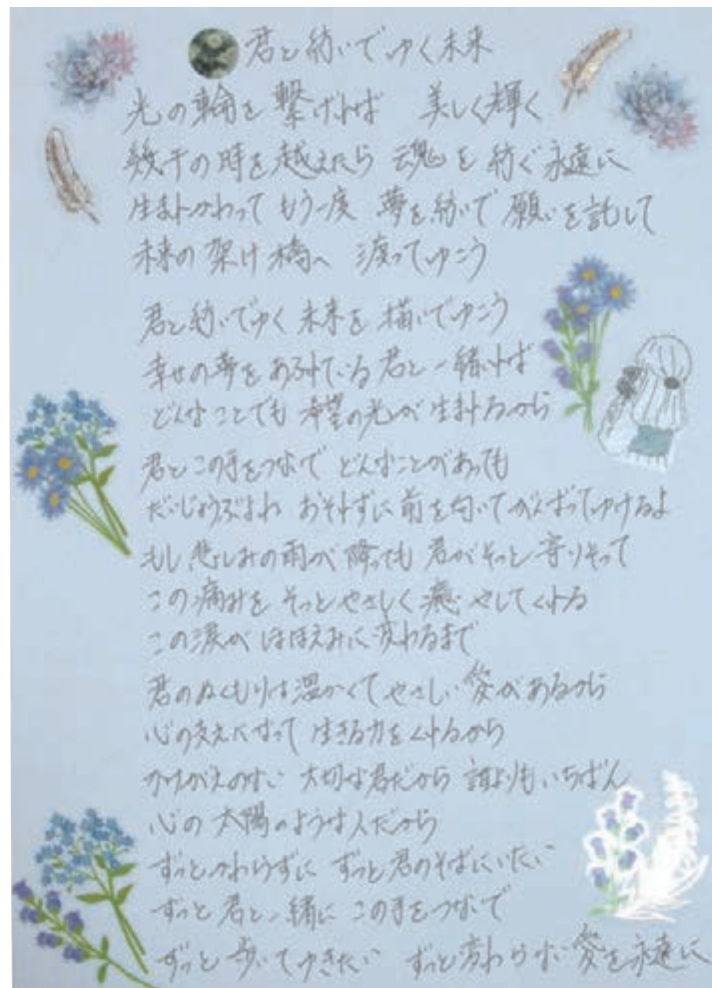 君と紡いでゆく未来
光の輪を繋げれば 美しく輝く
幾千の時を越えたら 魂を紡ぐ永遠に
生まれかわって もう一度 夢を紡いで 願いを託して
未来の架け橋へ 渡ってゆこう
君と紡いでゆく 未来を 描いてゆこう
幸せの夢を あふれている 君と一緒いれば
どんなことでも 希望の光が 生まれるから
君とこの手をつないで どんなことがあっても
だいじょうぶよね おそれずに 前を向いて がんばってゆけるよ
もし 悲しみの雨が 降っても 君がそっと 寄りそって
この痛みを そっとやさしく 癒やしてくれる
この涙が ほほえみに 変わるまで
君のぬくもりは温かくて やさしい愛があるから
心の支えになって 生きる力をくれるから
かけがえのない 大切な君だから 誰よりもいちばん
心の 太陽のような人だから
ずっとかわらずに ずっと君のそばにいたい
ずっと 君と一緒に この手をつないで
ずっと 歩いてゆきたい ずっと変わらない 愛を永遠に